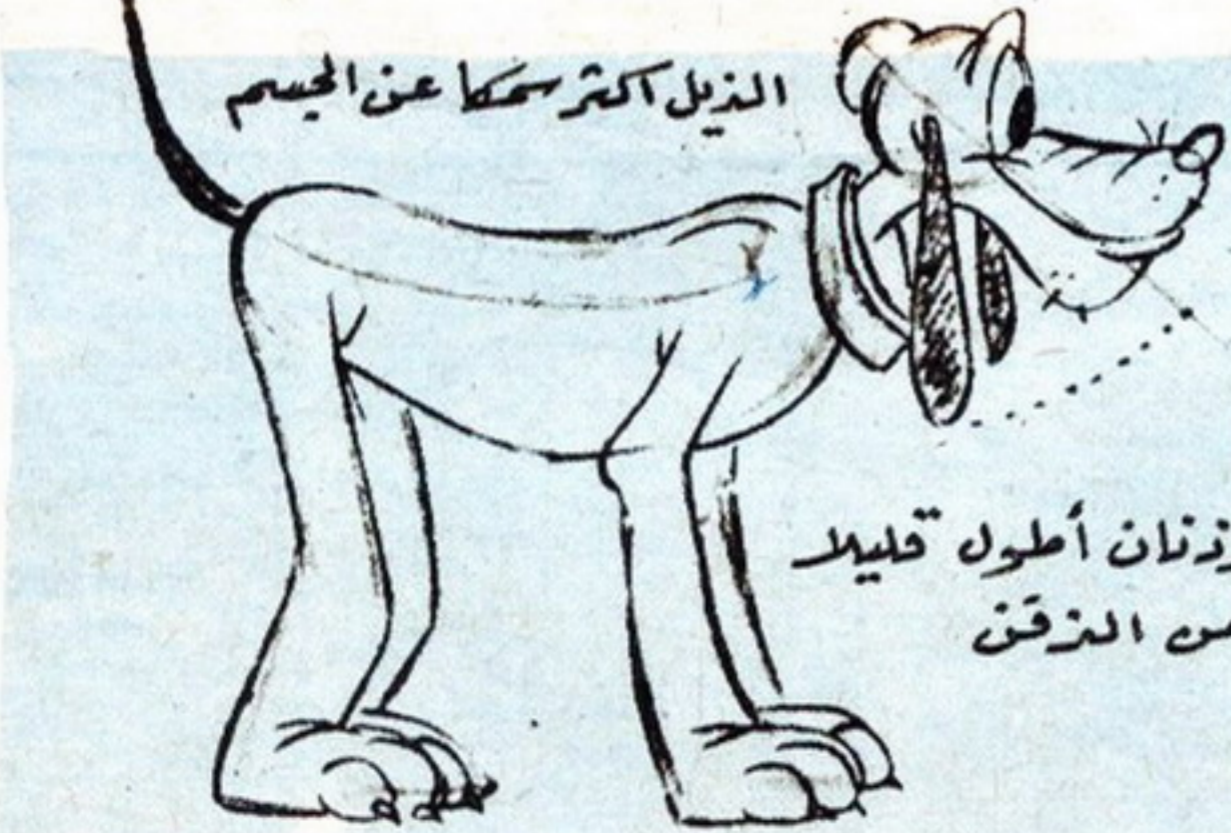 الذيل اكثر سمكا عن الجسم
أطول قليلا
الذقن